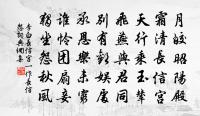 月皎昭陽殿
霜清長信宮
天行乘玉輦
飛燕與君同
別有歡娛處
承恩樂未窮
誰憐團扇妾
獨坐怨秋風
李白長信宮一作長信
怨詞典網集